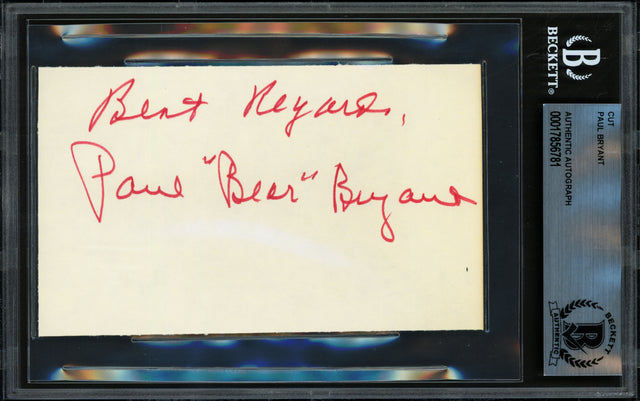 Best Regards,
Paul "Bear" Bryant
B
BECKETT®
CUT
PAUL BRYANT
AUTHENTIC AUTOGRAPH
00017856781
BECKETT
B
AUTHENTIC